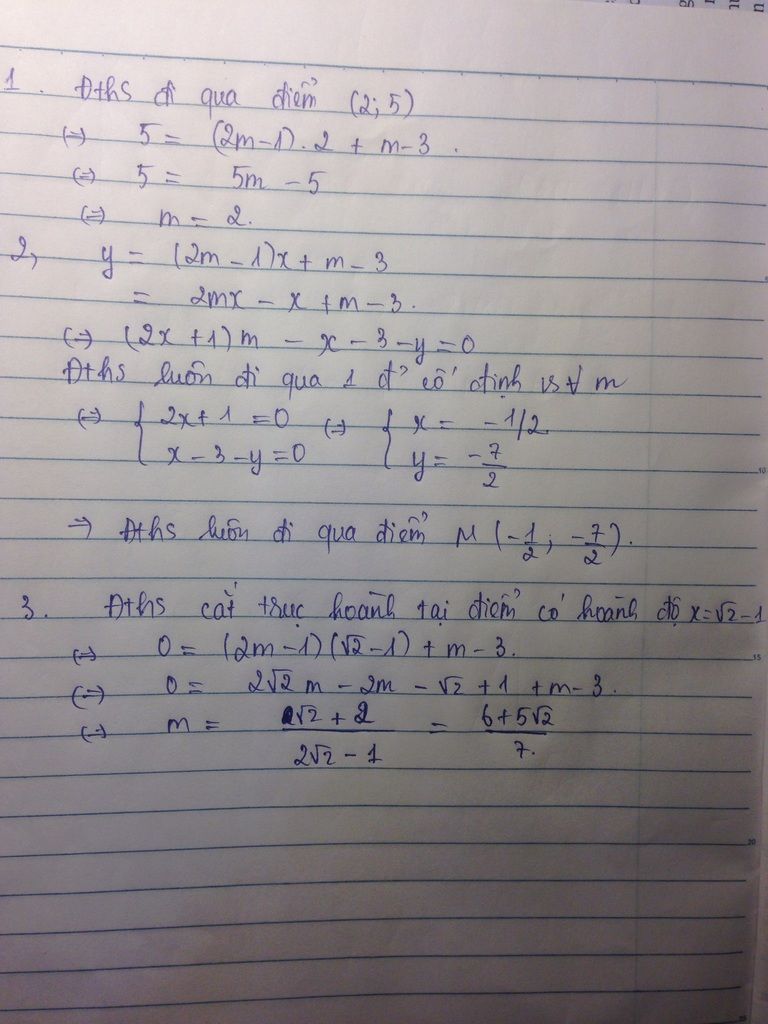 1. Đths đi qua điểm (2; 5)
(=) 5 = (2m-1).2 + m-3.
(=) 5 = 5m - 5
(=) m = 2.
2, y = (2m - 1)x + m - 3
= 2mx - x + m - 3.
(=) (2x + 1)m - x - 3 - y = 0
Đths luôn đi qua 1 đ' cố định vs ∀ m
(=) { 2x + 1 = 0 (=) { x = -1/2
x - 3 - y = 0 y = -7/2
=) Đths luôn đi qua điểm M (-1/2; -7/2).
3. Đths cắt trục hoành tại điểm có hoành độ x = √2 - 1
(=) 0 = (2m - 1)(√2 - 1) + m - 3.
(=) 0 = 2√2 m - 2m - √2 + 1 + m - 3.
(=) m = √2 + 2 / 2√2 - 1 = 6 + 5√2 / 7.